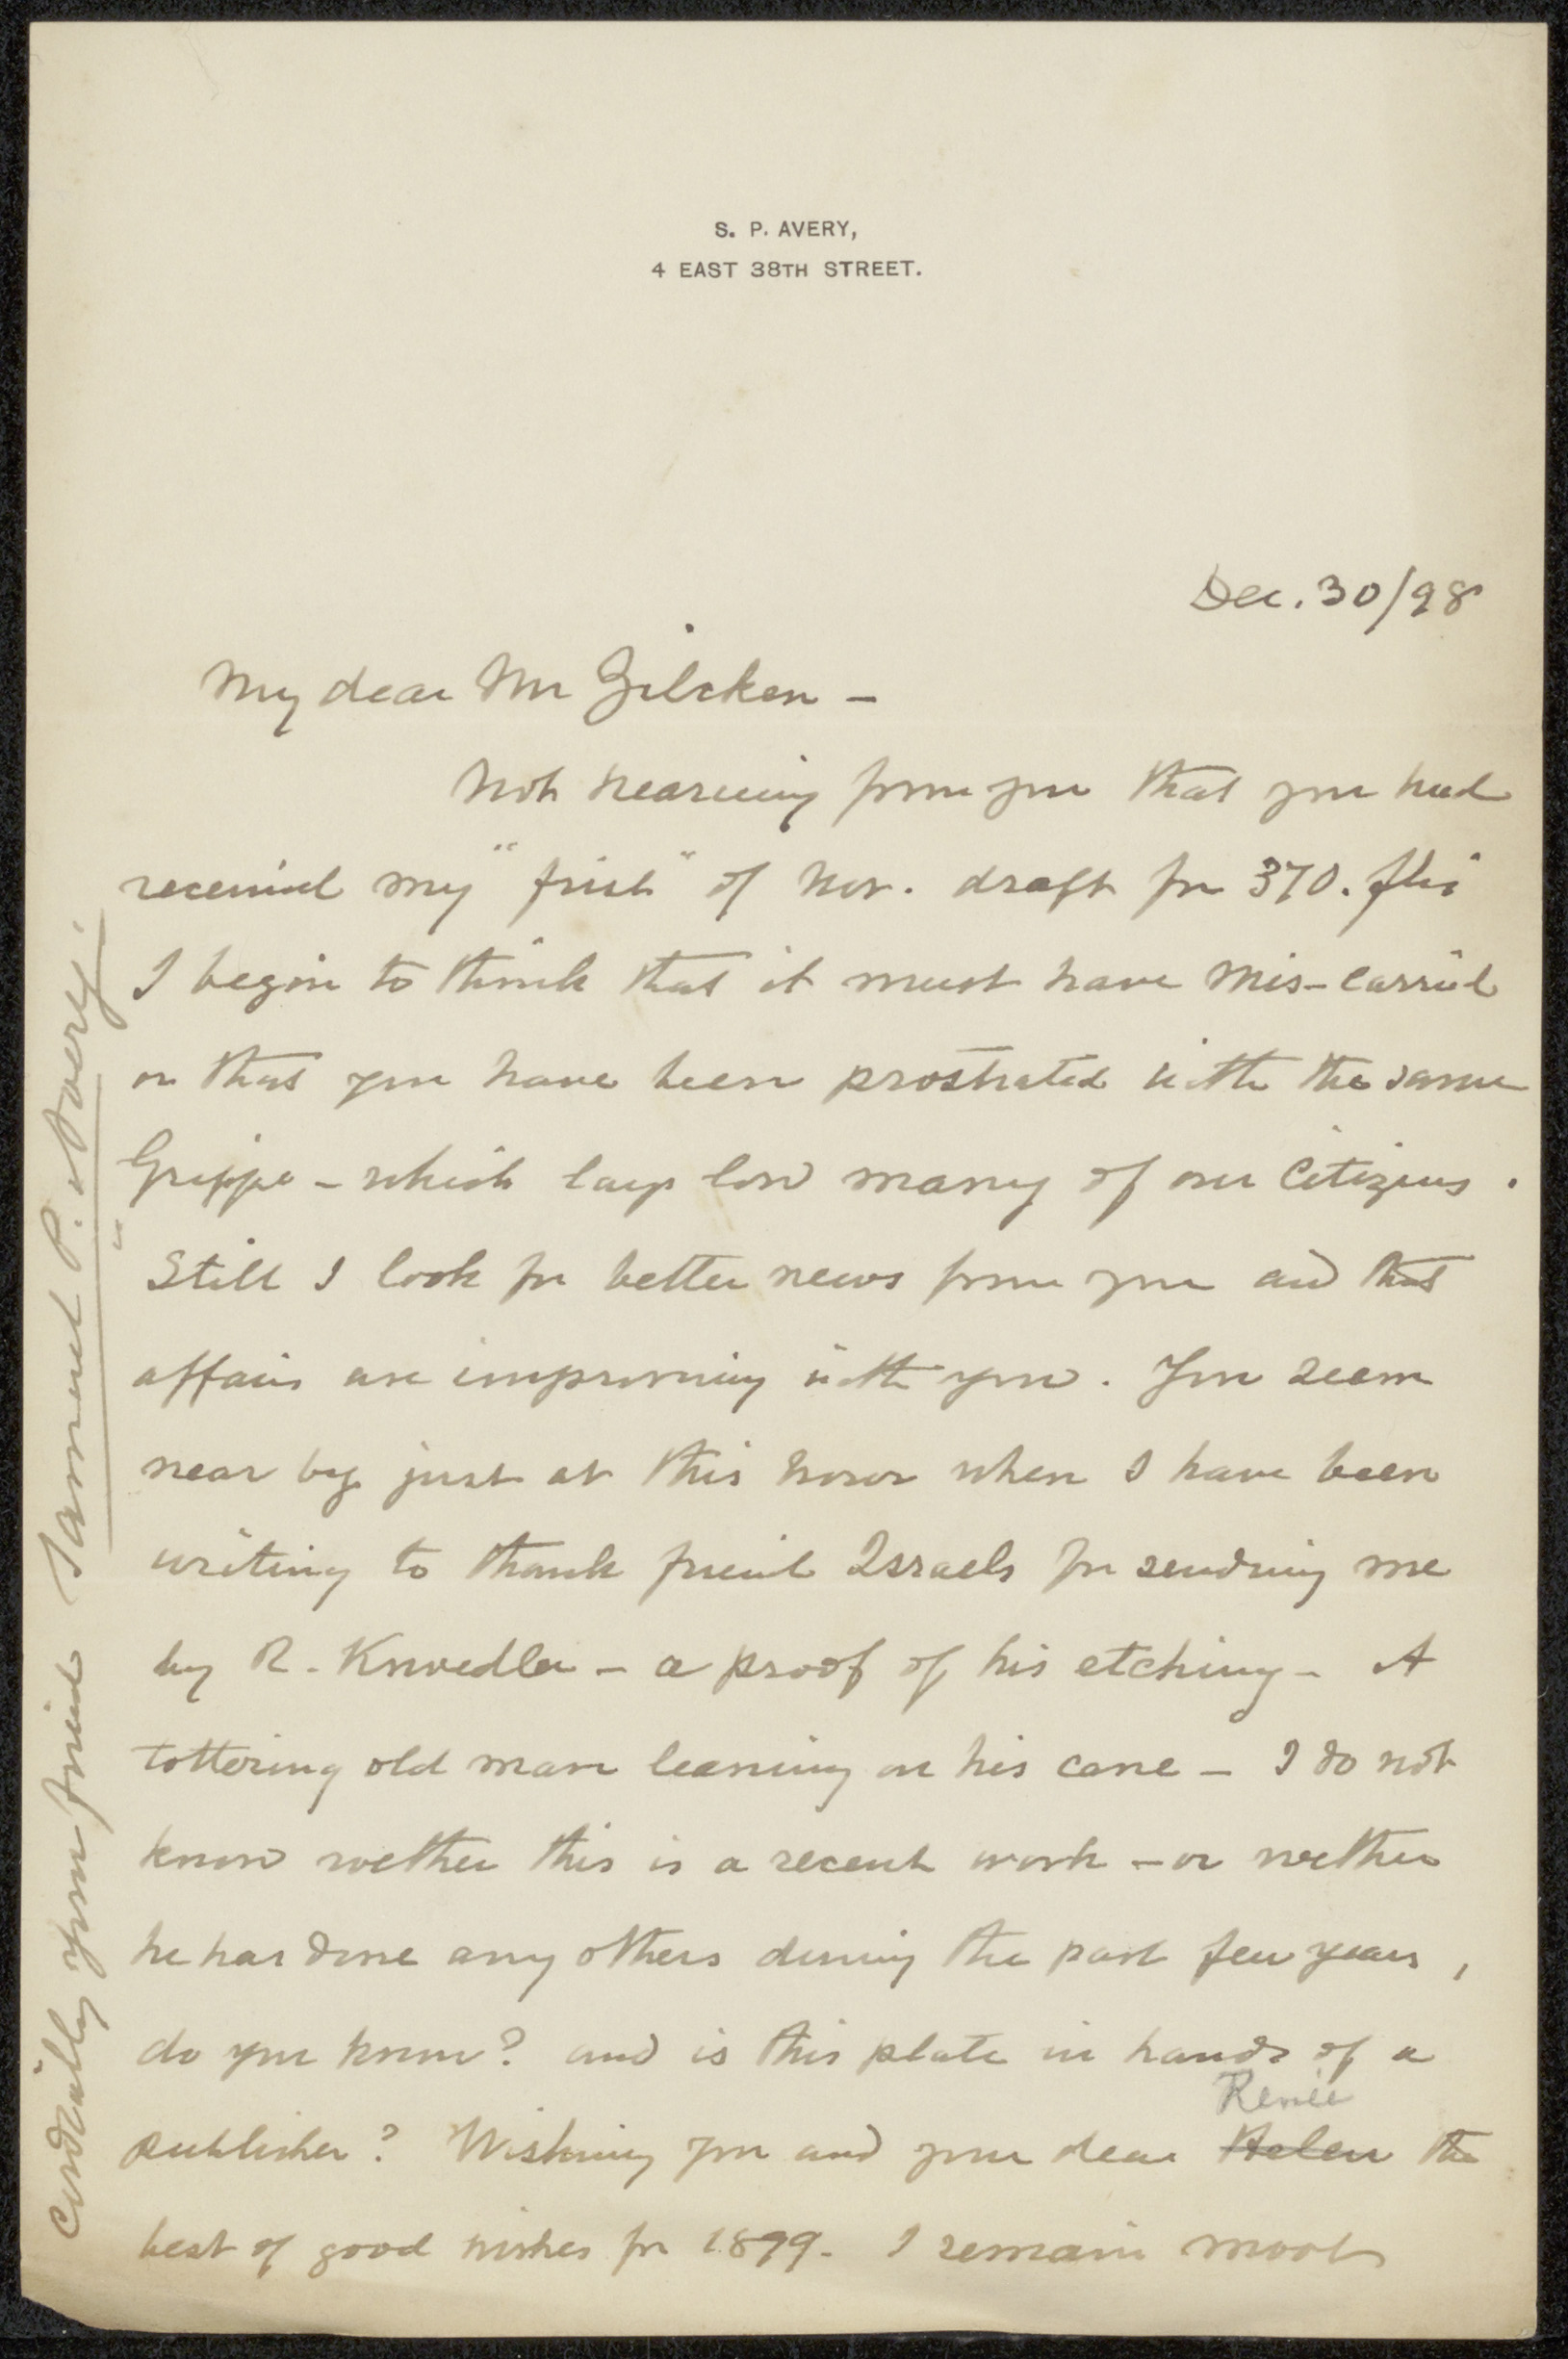 S. P. AVERY,
4 EAST 38TH STREET.
Dec. 30/98
My dear Mr Zilcken –
Not hearing from you that you had
received my "first" of Nov. draft for 370. flri
I begin to think that it must have mis-carried
or that you have been prostrated with the same
Grippe – which lays low many of our Citizens.
Still I look for better news from you and that
affairs are improving with you. You seem
near by just at this hour when I have been
writing to thank friend Israels for sending me
by R. Knoedler – a proof of his etching – A
tottering old man leaning on his cane – I do not
know wether this is a recent work – or wether
he has done any others during the past few years,
do you know? and is this plate in hands of a
publisher? Wishing you and your dear ~~Helen~~ Renée the
best of good wishes for 1899. I remain most
Cordially your friend Samuel P. Avery.